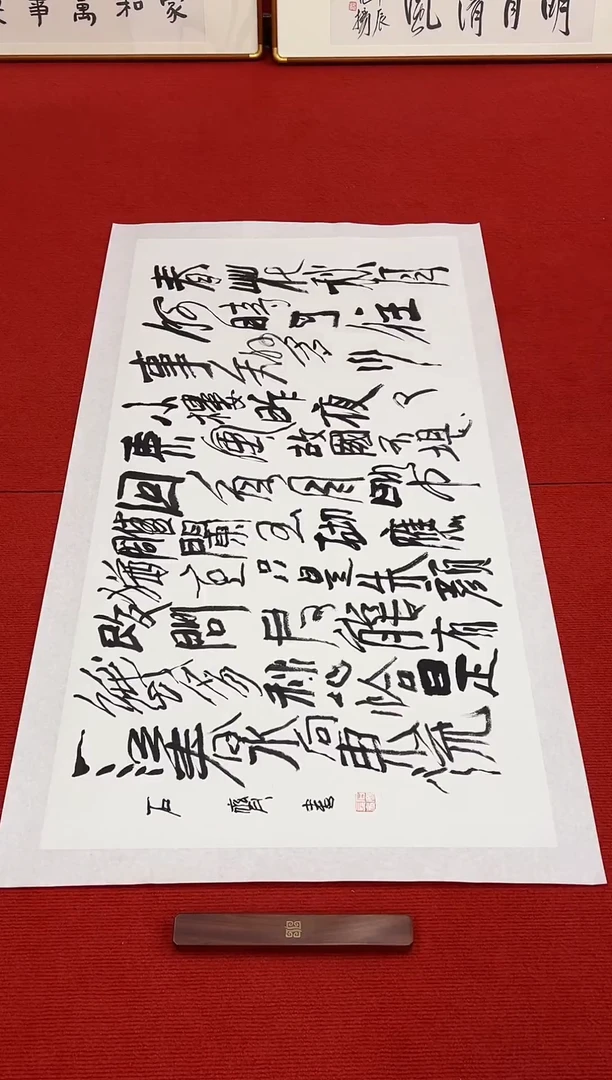 家和萬事
明月清風
春花秋月
何時了往
事知多少
小樓昨夜又
東風故國不堪
回首月明中
雕闌玉砌應
猶在只是朱顏
改問君能有
幾多愁恰似
一江春水向東流
石齊書